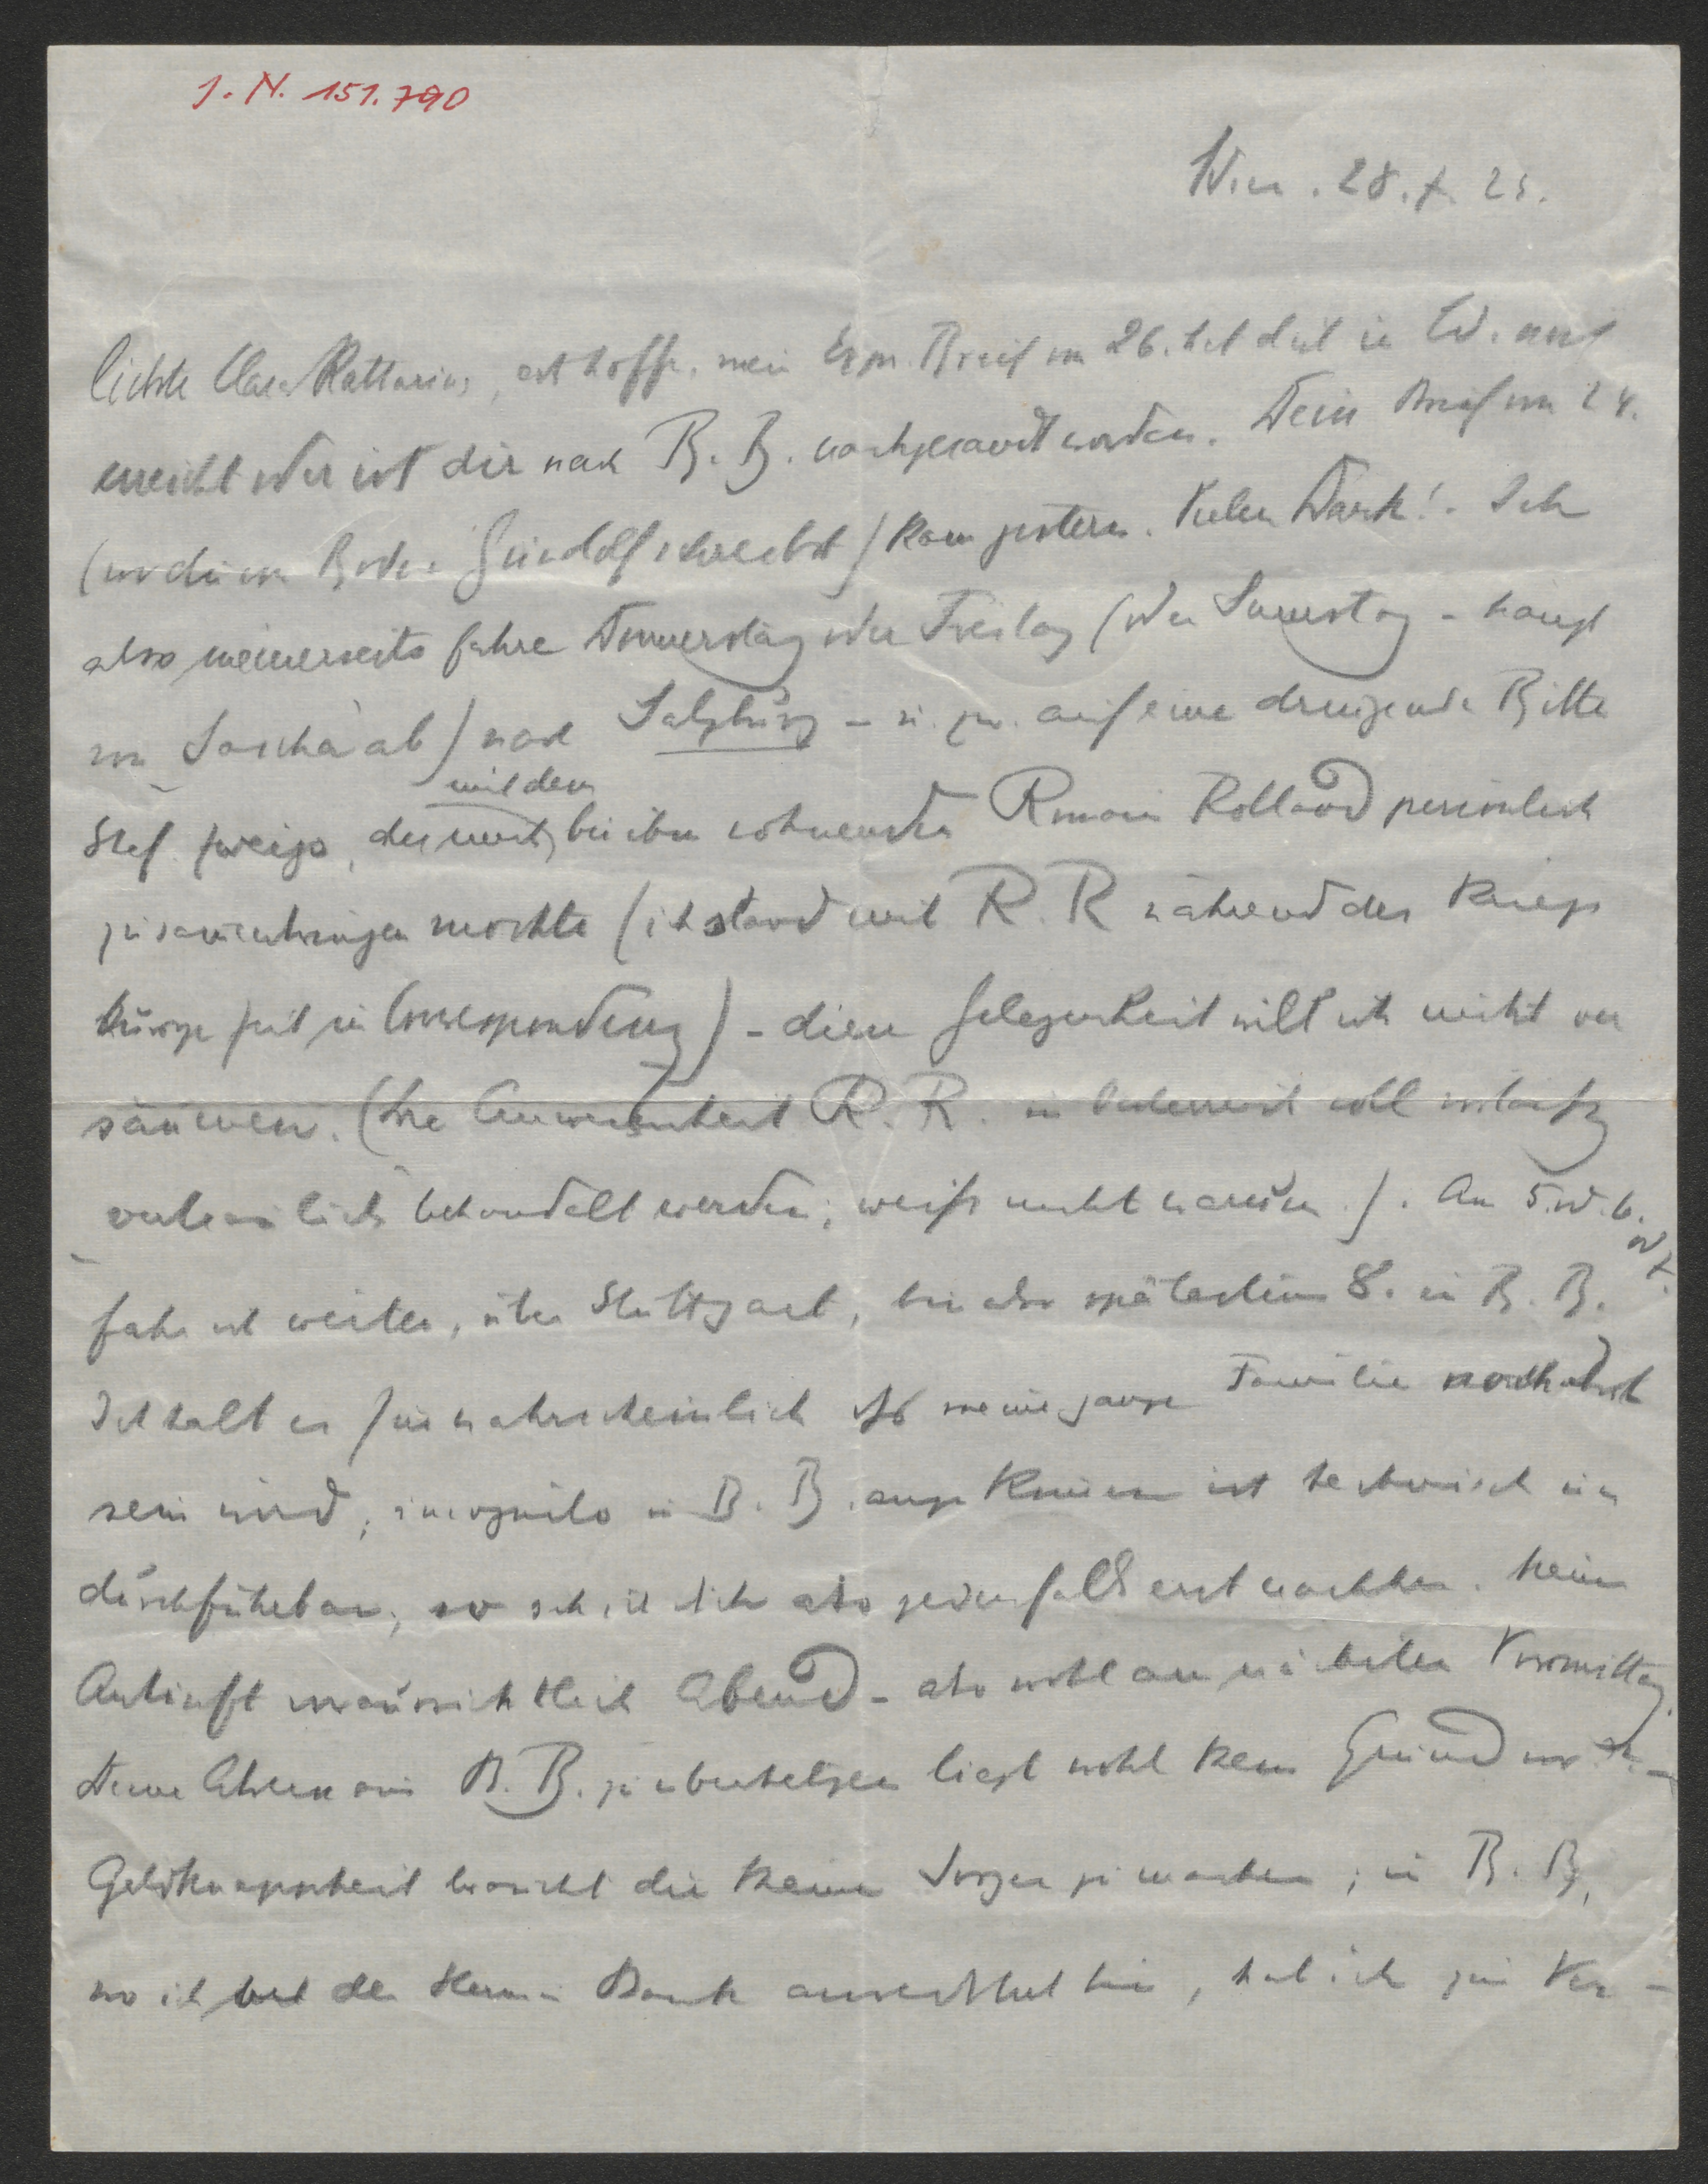 I. N. 151.790
Wien. 28. 7. 23.
liebste Clara Katharina, ich hoffe, mein Brief vom 26. hat dich in W. noch
erreicht oder ist dir nach B. B. nachgesandt worden. Dein Brief vom 24.
(wo du von Bruder schreibst) kam gestern. Vielen Dank! Ich
also meinerseits fahre Donnerstag oder Freitag (oder Samstag - hängt
von Sascha ab) nach Salzburg - u. zw. auf eine dringende Bitte
Stef Zweigs, der mich mit dem bei ihm wohnenden Romain Rolland persönlich
zusammenbringen möchte (ich stand mit R. R während des Kriegs
kurze Zeit in Correspondenz) - diese Gelegenheit will ich nicht ver
säumen. (Die Anwesenheit R. R. in Oesterreich soll vorläufig
vertraulich behandelt werden; weiß nicht warum.). Am 5. od. 6.
od 7.
fahr ich weiter, über Stuttgart, bin also spätestens 8. in B. B.
Ich halt es für wahrscheinlich daß meine ganze Familie noch dort
sein wird; incognito in B. B. anzukommen ist technisch un
durchführbar; so seh ich dich also jedenfalls erst nachher. Meine
Ankunft voraussichtlich Abend - also wohl am nächsten Vormittag.
Deine Abreise aus B. B. zu beschleunigen liegt wohl kein Grund vor -
Geldknappheit braucht dir keine Sorgen zu machen; in B. B,
wo ich bei der Bank bin, hab ich zur Ver-